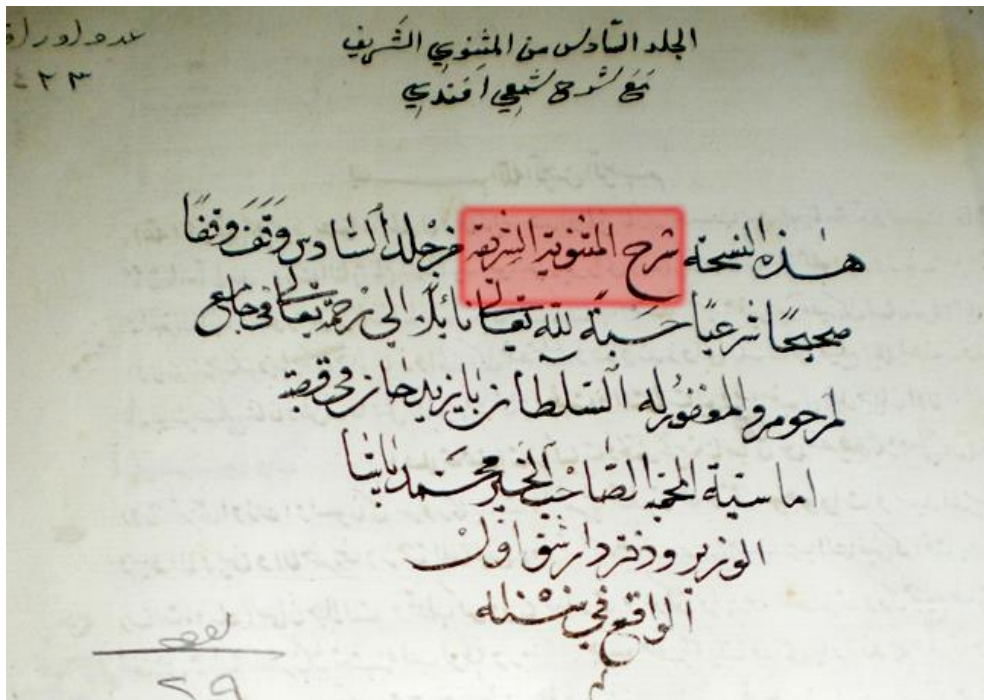 عدد اوراق
٤٢٣
الجلد السّادس من المثنوي الشّريف
مَعَ شرح شمعي افندي
هٰذه النسخة شرح المثنوية الشريفة من جلد السّادس وَقَفَ وَقفًا
صحيحًا شرعيًا حسبةً لله تعالى نائلًا الى رحمة تعالى في جامع
المرحوم والمغفور له السّلطان بايزيد خان في قصبة
اماسية المحمية الصّاحب الخير محمّد پاشا
الوزير ودفتردار شق اوّل
الواقع في سنه
٢٩